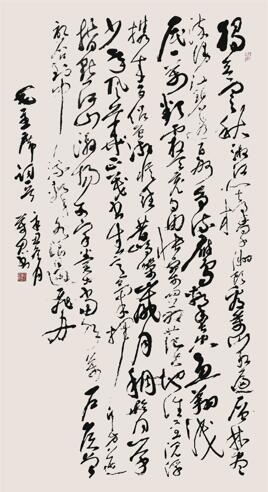 独立寒秋湘江北去橘子洲头看万山红遍层林尽
染漫江碧透百舸争流鹰击长空鱼翔浅
底万类霜天竞自由怅寥廓问苍茫大地谁主沉浮
携来百侣曾游忆往昔峥嵘岁月稠恰同学
少年风华正茂书生意气挥斥方遒
指点江山激扬文字粪土当年万户侯曾
记否到中流击水浪遏飞舟
毛主席词